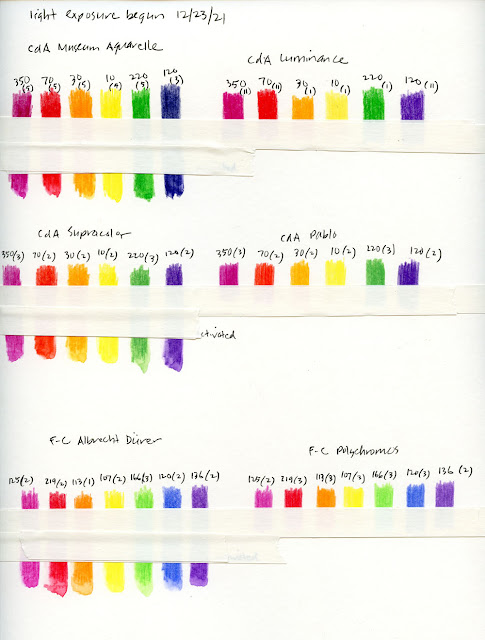 light exposure begun 12/23/21
CdA Museum Aquarelle
350 (5) 70 (5) 30 (5) 10 (5) 220 (5) 120 (3)
CdA Luminance
350 (11) 70 (11) 30 (1) 10 (1) 220 (1) 120 (11)
CdA Supracolor
350(3) 70(2) 30(2) 10(2) 220(3) 120(2)
CdA Pablo
350(3) 70(2) 30(2) 10(2) 220(3) 120(2)
ctivated
F-C Albrecht Dürer
125(2) 219(2) 113(1) 107(2) 166(3) 120(2) 136(2)
F-C Polychromos
125(2) 219(3) 113(3) 107(2) 166(3) 120(3) 136(2)